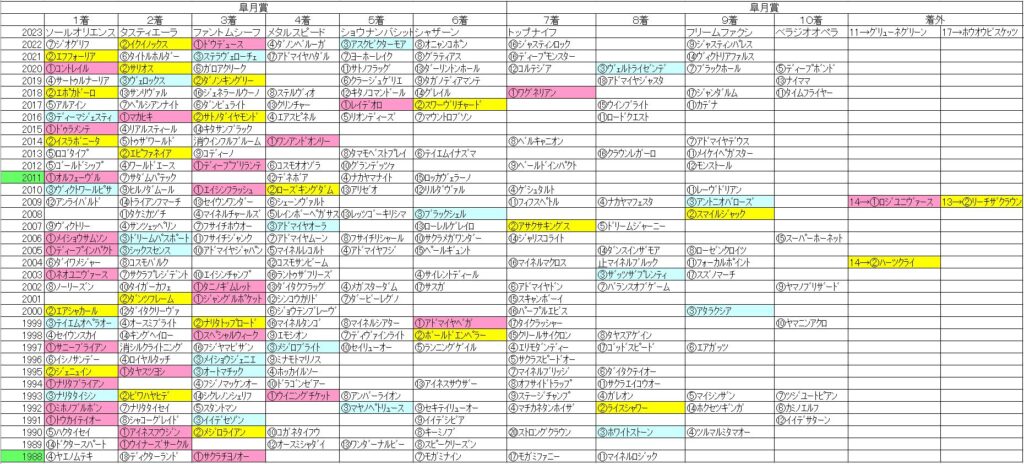 皐月賞 皐月賞
1着 2着 3着 4着 5着 6着 7着 8着 9着 10着 着外
2023 ソールオリエンス タスティエーラ ファントムシーフ メタルスピード ショウナンバシット シャザーン トップナイフ フリームファクシ ベラジオオペラ 11→グリューネグリーン 17→ホウオウビスケッツ
2022 ⑦ジオグリフ ②イクイノックス ①ドウデュース ④ダノンベルーガ ③アスクビクターモア ⑧オニャンコポン ⑯ジャスティンロック ⑨ジャスティンパレス
2021 ②エフフォーリア ⑥タイトルホルダー ③ステラヴェローチェ ⑰アドマイヤハダル ⑦ヨーホーレイク ⑧グラティアス ⑯ディープモンスター ⑭ヴィクティファルス
2020 ①コントレイル ②サリオス ⑥ガロアクリーク ⑪サトノフラッグ ⑰ダーリントンホール ⑫コルテジア ③ヴェルトライゼンデ ⑦ブラックホール ⑤ディープボンド
2019 ④サートゥルナーリア ③ヴェロックス ②ダノンキングリー ⑥クラージュゲリエ ⑨タガノディアマンテ ⑬アドマイヤジャスタ ⑬ナイママ
2018 ②エポカドーロ ⑬サンリヴァル ⑯ジェネラーレウーノ ⑧ステルヴィオ ⑫キタノコマンドール ⑭グレイル ①ワグネリアン ⑰ジャンダルム ⑪タイムフライヤー
2017 ⑤アルアイン ⑦ペルシアンナイト ⑥ダンビュライト ⑬クリンチャー ①レイデオロ ②スワーヴリチャード ⑮ウインブライト ⑪カデナ
2016 ③ディーマジェスティ ①マカヒキ ②サトノダイヤモンド ④エアスピネル ⑤リオンディーズ ⑦マウントロブソン ⑪ロードクエスト
2015 ①ドゥラメンテ ④リアルスティール ⑭キタサンブラック
2014 ②イスラボニータ ⑤トゥザワールド 消ウインフルブルーム ①ワンアンドオンリー ⑧ベルキャニオン ⑦アドマイヤデウス
2013 ⑤ロゴタイプ ②エピファネイア ⑨コディーノ ⑧タマモベストプレイ ⑥テイエムイナズマ ⑯クラウンレガーロ ⑪メイケイペガスター
2012 ⑤ゴールドシップ ④ワールドエース ①ディープブリランテ ⑥コスモオオゾラ ⑩グランデッツァ ⑨ベールドインパクト ⑫モンストール
2011 ①オルフェーヴル ⑦サダムパテック ⑫デボネア ④ナカヤマナイト ⑮ロッカヴェラーノ
2010 ③ヴィクトワールピサ ⑨ヒルノダムール ①エイシンフラッシュ ②ローズキングダム ⑬アリゼオ ⑫リルダヴァル ④ゲシュタルト ⑪レーヴドリアン
2009 ⑫アンライバルド ⑭トライアンフマーチ ⑬セイウンワンダー ⑥シェーンヴァルト ⑪フィフスペトル ④ナカヤマフェスタ ③アントニオバローズ 14→①ロジユニヴァース 13→②リーチザクラウン
2008 ⑪タケミカヅチ ④マイネルチャールズ ⑤レインボーペガサス ⑬レッツゴーキリシマ ③ブラックシェル ②スマイルジャック
2007 ⑨ヴィクトリー ④サンツェッペリン ⑦フサイチホウオー ③アドマイヤオーラ ⑬ローレルゲレイロ ②アサクサキングス ⑤ドリームジャーニー
2006 ①メイショウサムソン ③ドリームパスポート ⑪フサイチジャンク ⑦アドマイヤムーン ⑧フサイチリシャール ⑩サクラメガワンダー ⑭ジャリスコライト ⑮スーパーホーネット
2005 ①ディープインパクト ③シックスセンス ⑩アドマイヤジャパン ⑤マイネルレコルト ④アドマイヤフジ ⑮ペールギュント ⑭ダンスインザモア ⑧ローゼンクロイツ
2004 ⑥ダイワメジャー ⑤コスモバルク ⑫コスモサンビーム ⑯マイネルマクロス 止マイネルブルック ⑪フォーカルポイント 14→②ハーツクライ
2003 ①ネオユニヴァース ⑦サクラプレジデント ⑩エイシンチャンプ ⑯ラントゥザフリーズ ④サイレントディール ③ザッツザプレンティ ⑰スズノマーチ
2002 ⑧ノーリーズン ⑩タイガーカフェ ①タニノギムレット ⑬ダイタクフラッグ ④メガスターダム ⑰サスガ ⑥アドマイヤドン ⑦バランスオブゲーム ⑨ヤマノブリザード
2001 ②ダンツフレーム ①ジャングルポケット ⑫シンコウカリド ⑦ダービーレグノ ⑮スキャンボーイ
2000 ②エアシャカール ⑫ダイタクリーヴァ ⑥ジョウテンブレーヴ ⑯パープルエビス ③アタラクシア
1999 ③テイエムオペラオー ④オースミブライト ②ナリタトップロード ⑯マイネルタンゴ ⑧マイネルシアター ①アドマイヤベガ ⑰タイクラッシャー ⑩ヤマニンアクロ
1998 ④セイウンスカイ ⑭キングヘイロー ①スペシャルウィーク ⑨エモシオン ⑦ディヴァインライト ②ボールドエンペラー ⑮クリールサイクロン ⑧タヤスアゲイン
1997 ①サニーブライアン 消シルクライトニング ⑰フジヤマビザン ③メジロブライト ⑩セイリューオー ⑤ランニングゲイル ④エリモダンディー ⑰ゴッドスピード ⑥エアガッツ
1996 ⑥イシノサンデー ④ロイヤルタッチ ③メイショウジェニエ ⑨ミナモトマリノス ⑤サクラスピードオー
1995 ②ジェニュイン ①タヤスツヨシ ③オートマチック ④ホッカイルソー ⑦マイネルブリッジ ⑥ダイタクテイオー
1994 ①ナリタブライアン ④フジノマッケンオー ⑩ドラゴンゼアー ⑬アイネスサウザー ⑧オフサイドトラップ ⑪サクラエイコウオー
1993 ③ナリタタイシン ②ビワハヤヒデ ⑭シクレノンシェリフ ①ウイニングチケット ⑧アンバーライオン ⑨ステージチャンプ ④ガレオン ⑤マイシンザン ⑦ツジユートピアン
1992 ①ミホノブルボン ⑦ナリタタイセイ ⑤スタントマン ③マヤノペトリュース ⑨セキテイリューオー ④マチカネタンホイザ ②ライスシャワー ⑭ホクセツギンガ ⑥カミノエルフ
1991 ①トウカイテイオー ⑥シャコーグレイド ③イイデセゾン ⑪イイデシビア ⑫イイデサターン
1990 ⑤ハクタイセイ ①アイネスフウジン ②メジロライアン ⑩コガネタイフウ ⑧キーミノブ ⑳ストロングクラウン ③ホワイトストーン ④ツルマルミタマオー
1989 ⑭ドクタースパート ①ウイナーズサークル ⑫オースミシャダイ ⑬ワンダーナルビー ⑥スピークリーズン
1988 ④ヤエノムテキ ⑬ディクターランド ①サクラチヨノオー ⑦モガミナイン ⑰モガミファニー ⑪マイネルロジック